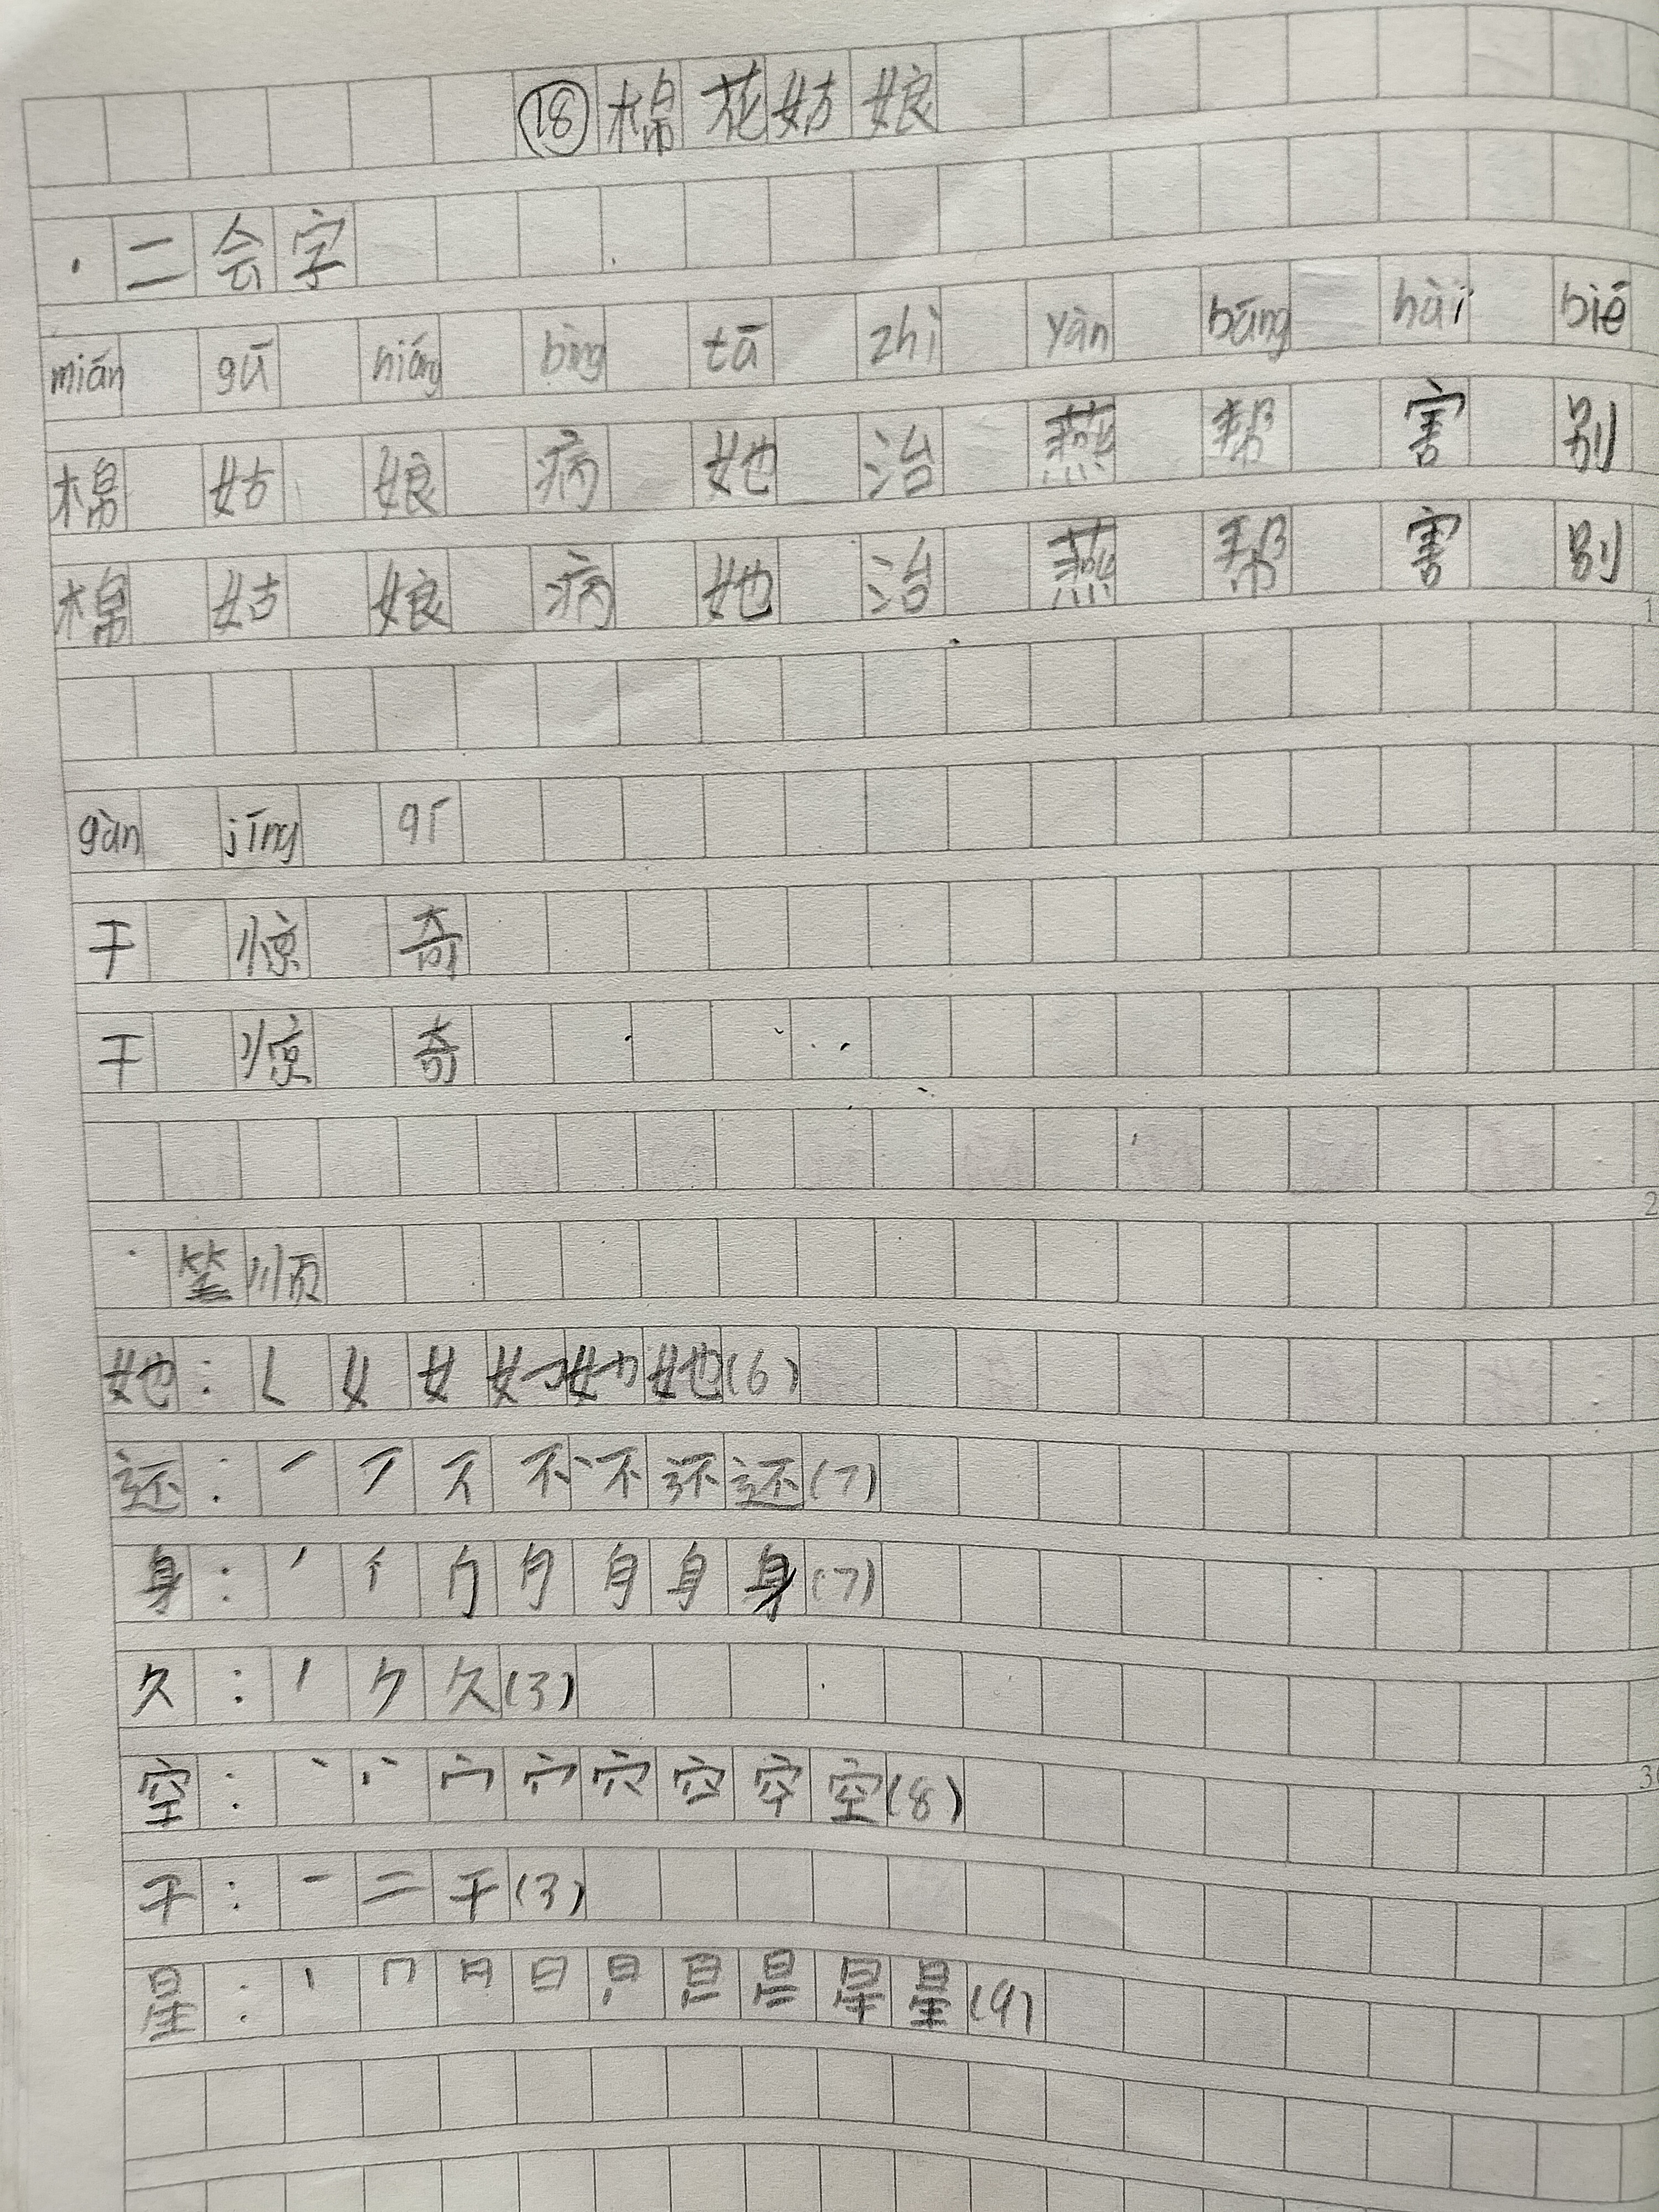 ⑱棉花姑娘
·二会字
mián gū niáng bìng tā zhì yàn bāng hài bié
棉 姑 娘 病 她 治 燕 帮 害 别
棉 姑 娘 病 她 治 燕 帮 害 别
gàn jīng qí
干 惊 奇
干 惊 奇
·笔顺
她:𡿨 女 女 她(6)
还:一 丆 不 不 还(7)
身:丿 身(7)
久:丿 ク 久(3)
空:丶 宀 穴 空(8)
干:一 二 干(3)
星:丨 冂 日 日 旦 星(9)
1
2
3